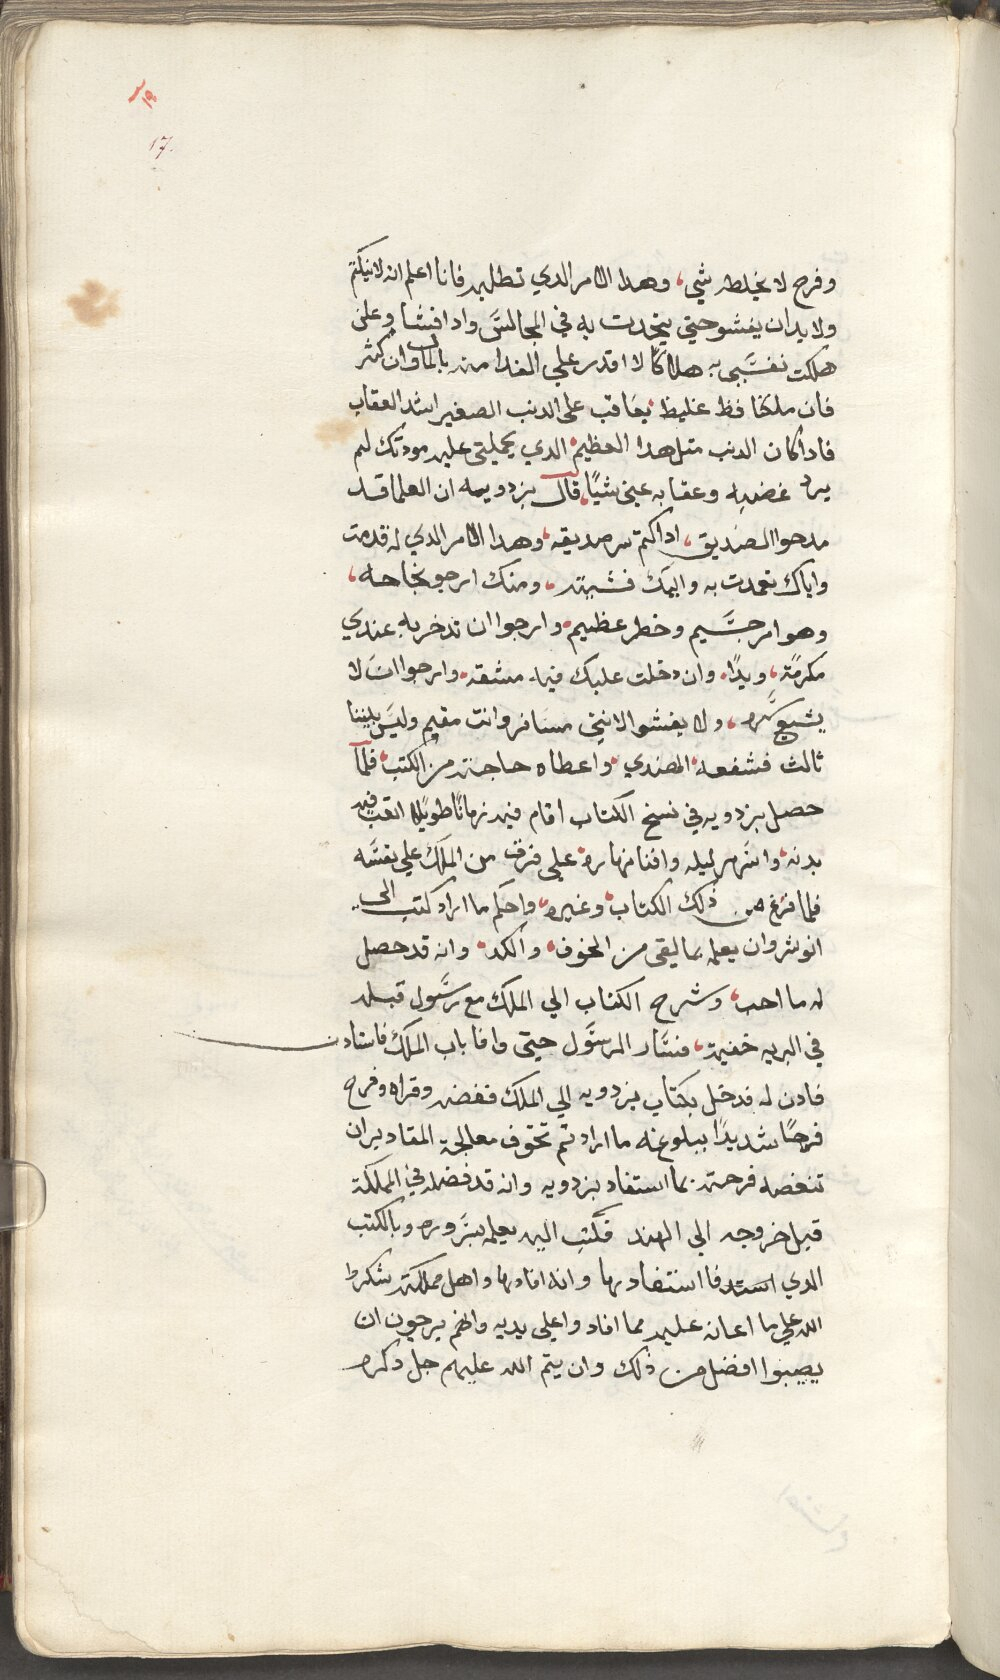 ١٩
17.
وفرح لا يخلطه شي، وهدا الامر الدي تطلبه فانا اعلم انه لا ينكتم
ولا بد ان يفشو حتي يتحدت به في المجالسَ وادا فشا وعلن
هلكت نفسَّي به هلاكًا لا اقدر علي الفدا منه بالمال وان كثر
فان ملكنا فظ غليظ يعَاقب على الدنب الصغير اشد العقاب
فادا كان الدنب متل هدا العظيم الدي يحملني عليه مودتك لم
يرد غضبه وعقابه عني شيًّا، قال بزدويه ان العلما قد
مدحوا الصديق، ادا كتم سر صديقه، وهدا الامر الدي له قدمت
واياك تعمدت به واليك فشيته، ومنك ارجو نجاحه،
وهو امر جسَّيم وخطر عظيم، وارجوا ان تدخر به عندي
مكرمًة، ويدًا، وان دخلت عليك فيه مشقه، وارجوا انك لا
يشيع سَّره، ولا يفشو لانني مسَافر وانت مقيم وليسَ بيننا
ثالث فشفعه الهندي، واعطاه حاجته من الكتب، فلما
حصل بزدويه في نسخ الكتاب اقام فيه زمانًا طويلًا اتعب فيه
بدنه، واسَهر ليله وافنا نهاره، علي فرق من الملك علي نفسَه
فلما فرغ من ذلك الكتاب، وغيره، واحكم ما اراد كتب الى
انوشروان يعلمه بما لقي من الخوف، والكد، وانه قد حصل
له ما احب، وشرح الكتاب الي الملك مع رسَول قبله
في البريه خفيه، فسَار الرسوَل حتي وافا باب الملك فاستادن
فادن له فدخل بكتاب بزدويه الي الملك ففضه وقراه وفرح
فرحًا شديدًا ببلوغه ما اراد تم تخوف معالجة المقادير ان
تنغصه فرحته بما استفاد بزدويه وانه قد فضله في المملكة
قبل خروجه الي الهند فكتب اليه يعلمه بسَروره وبالكتب
الدي استفادها وانه افادها واهل مملكته شكرا
الله علي ما اعانه عليه مما افاد واعلي يديه وانهم يرجون ان
يصيبوا افضل من ذلك وان يتم الله عليهم جل دكره